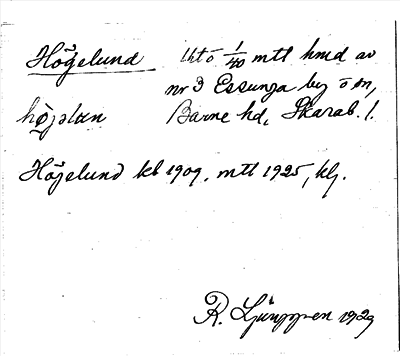 Högelund Utö 1/40 mtl hmd av
nr 3 Essunga by o sn,
höjəlɯn Barne hd, Skarab. l.
Höjelund kb 1909, mtl 1925, klj.
R. Ljunggren 1929